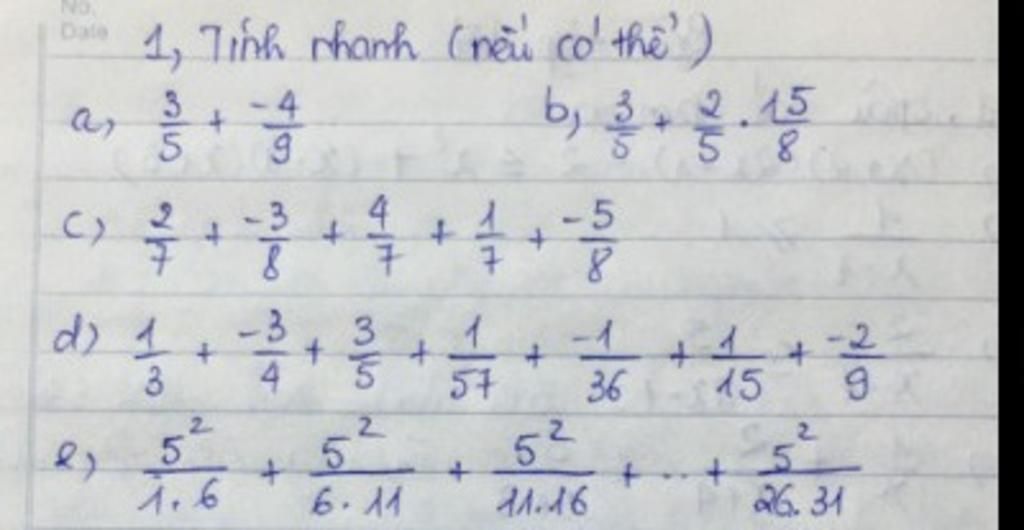 No.
Date
1, Tính nhanh (nếu có thể)
a, 3/5 + -4/9 b, 3/5 + 2/5 . 15/8
c) 2/7 + -3/8 + 4/7 + 1/7 + -5/8
d) 1/3 + -3/4 + 3/5 + 1/57 + -1/36 + 1/15 + -2/9
e, 5²/1.6 + 5²/6.11 + 5²/11.16 + ... + 5²/26.31